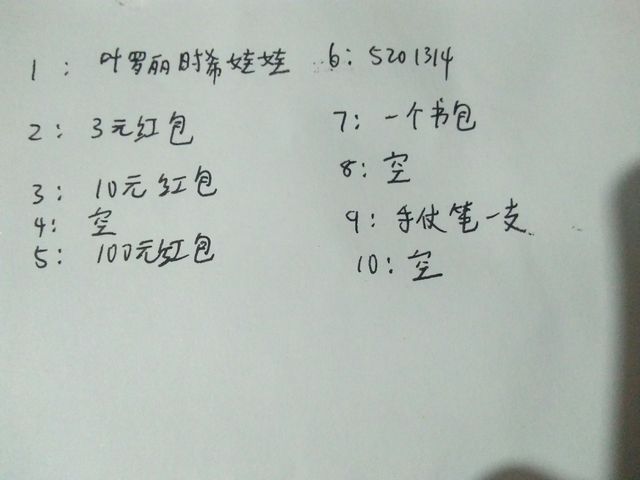 1：叶罗丽时希娃娃
2：3元红包
3：10元红包
4：空
5：100元红包
6：5201314
7：一个书包
8：空
9：手仗笔一支
10：空